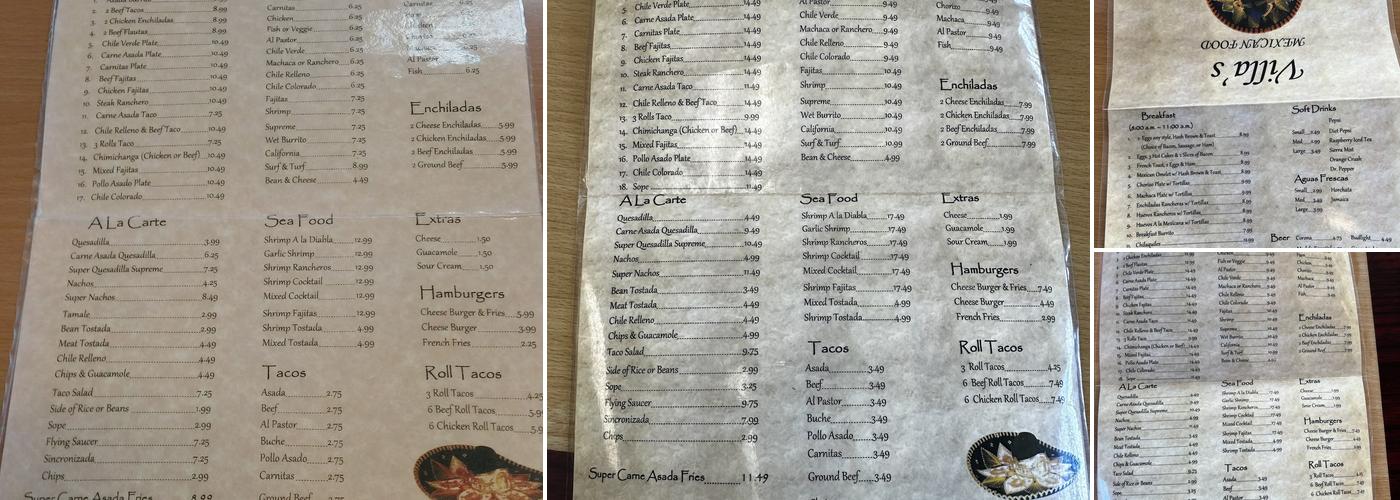 2. 2 Beef Tacos 8.99
3. 2 Chicken Enchiladas 8.99
4. 2 Beef Flautas 8.99
5. Chile Verde Plate 10.49
6. Carne Asada Plate 10.49
7. Carnitas Plate 10.49
8. Beef Fajitas 10.49
9. Chicken Fajitas 10.49
10. Steak Ranchero 10.49
11. Carne Asada Taco 7.25
12. Chile Relleno & Beef Taco 10.49
13. 3 Rolls Taco 7.25
14. Chimichanga (Chicken or Beef) 10.49
15. Mixed Fajitas 10.49
16. Pollo Asado Plate 10.49
17. Chile Colorado 10.49
Carnitas 6.25
Chicken 6.25
Fish or Veggie 6.25
Al Pastor 6.25
Chile Verde 6.25
Machaca or Ranchero 6.25
Chile Relleno 6.25
Chile Colorado 6.25
Fajitas 7.25
Shrimp 7.25
Supreme 7.25
Wet Burrito 7.25
California 7.25
Surf & Turf 8.99
Bean & Cheese 4.49
Carnitas 6.25
Al Pastor
Fish 6.25
Enchiladas
2 Cheese Enchiladas 5.99
2 Chicken Enchiladas 5.99
2 Beef Enchiladas 5.99
2 Ground Beef 5.99
A La Carte
Quesadilla 3.99
Carne Asada Quesadilla 6.25
Super Quesadilla Supreme 7.25
Nachos 4.25
Super Nachos 8.49
Tamale 2.99
Bean Tostada 2.99
Meat Tostada 4.49
Chile Relleno 4.49
Chips & Guacamole 4.49
Taco Salad 7.25
Side of Rice or Beans 1.99
Sope 2.99
Flying Saucer 7.25
Sincronizada 7.25
Chips 2.99
Super Carne Asada Fries 8.99
Sea Food
Shrimp A la Diabla 12.99
Garlic Shrimp 12.99
Shrimp Rancheros 12.99
Shrimp Cocktail 12.99
Mixed Cocktail 12.99
Shrimp Fajitas 12.99
Shrimp Tostada 4.49
Mixed Tostada 4.49
Tacos
Asada 2.75
Beef 2.75
Al Pastor 2.75
Buche 2.75
Pollo Asado 2.75
Carnitas 2.75
Extras
Cheese 1.50
Guacamole 1.50
Sour Cream 1.50
Hamburgers
Cheese Burger & Fries 5.99
Cheese Burger 3.99
French Fries 2.25
Roll Tacos
3 Roll Tacos 4.25
6 Beef Roll Tacos 5.99
6 Chicken Roll Tacos
5. Chile Verde Plate 14.49
6. Carne Asada Plate 14.49
7. Carnitas Plate 14.49
8. Beef Fajitas 14.49
9. Chicken Fajitas 14.49
10. Steak Ranchero 14.49
11. Carne Asada Taco 11.49
12. Chile Relleno & Beef Taco 14.49
13. 3 Rolls Taco 9.99
14. Chimichanga (Chicken or Beef) 14.49
15. Mixed Fajitas 14.49
16. Pollo Asado Plate 14.49
17. Chile Colorado 14.49
18. Sope 11.49
Al Pastor 9.49
Chile Verde 9.49
Machaca or Ranchero 9.49
Chile Relleno 9.49
Chile Colorado 9.49
Fajitas 10.49
Shrimp 10.49
Supreme 10.49
Wet Burrito 10.49
California 10.49
Surf & Turf 10.49
Bean & Cheese 4.99
Chorizo 9.49
Machaca 9.49
Al Pastor 9.49
Fish 9.49
Enchiladas
2 Cheese Enchiladas 7.99
2 Chicken Enchiladas 7.99
2 Beef Enchiladas 7.99
2 Ground Beef 7.99
A La Carte
Quesadilla 4.49
Carne Asada Quesadilla 9.49
Super Quesadilla Supreme 10.49
Nachos 4.49
Super Nachos 11.49
Bean Tostada 3.49
Meat Tostada 4.49
Chile Relleno 4.49
Chips & Guacamole 4.49
Taco Salad 9.75
Side of Rice or Beans 2.99
Sope 3.25
Flying Saucer 9.75
Sincronizada 7.99
Chips 2.99
Super Carne Asada Fries 11.49
Sea Food
Shrimp A la Diabla 17.49
Garlic Shrimp 17.49
Shrimp Rancheros 17.49
Shrimp Cocktail 17.49
Mixed Cocktail 17.49
Shrimp Fajitas 17.49
Mixed Tostada 4.99
Shrimp Tostada 4.99
Tacos
Asada 3.49
Beef 3.49
Al Pastor 3.49
Buche 3.49
Pollo Asado 3.49
Carnitas 3.49
Ground Beef 3.49
Extras
Cheese 1.99
Guacamole 1.99
Sour Cream 1.99
Hamburgers
Cheese Burger & Fries 7.49
Cheese Burger 4.49
French Fries 2.99
Roll Tacos
3 Roll Tacos 4.25
6 Beef Roll Tacos 7.49
6 Chicken Roll Tacos 7.49
Villa's
MEXICAN FOOD
Breakfast
(8:00 a.m. – 11:00 a.m.)
1. 2 Eggs any style, Hash Brown & Toast 8.99
(Choice of Bacon, Sausage, or Ham)
2. Eggs, 3 Hot Cakes & 2 Slices of Bacon
3. French Toast, 2 Eggs & Ham
4. Mexican Omelet w/ Hash Brown & Toast
5. Chorizo Plate w/ Tortillas
6. Machaca Plate w/ Tortillas
7. Enchiladas Rancheros w/ Tortillas
8. Huevos Rancheros w/ Tortillas
9. Huevos A la Mexicana w/ Tortillas
10. Breakfast Burrito
Chilaquiles
Soft Drinks
Pepsi
Small 2.49 Diet Pepsi
Med 2.99 Raspberry Iced Tea
Large 3.49 Sierra Mist
Orange Crush
Dr. Pepper
Aguas Frescas
Small 2.99 Horchata
Med 3.49 Jamaica
Large 3.99
Beer Corona 4.75 Budlight 4.49
Enchiladas
A La Carte
Sea Food
Extras
Hamburgers
Tacos
Roll Tacos